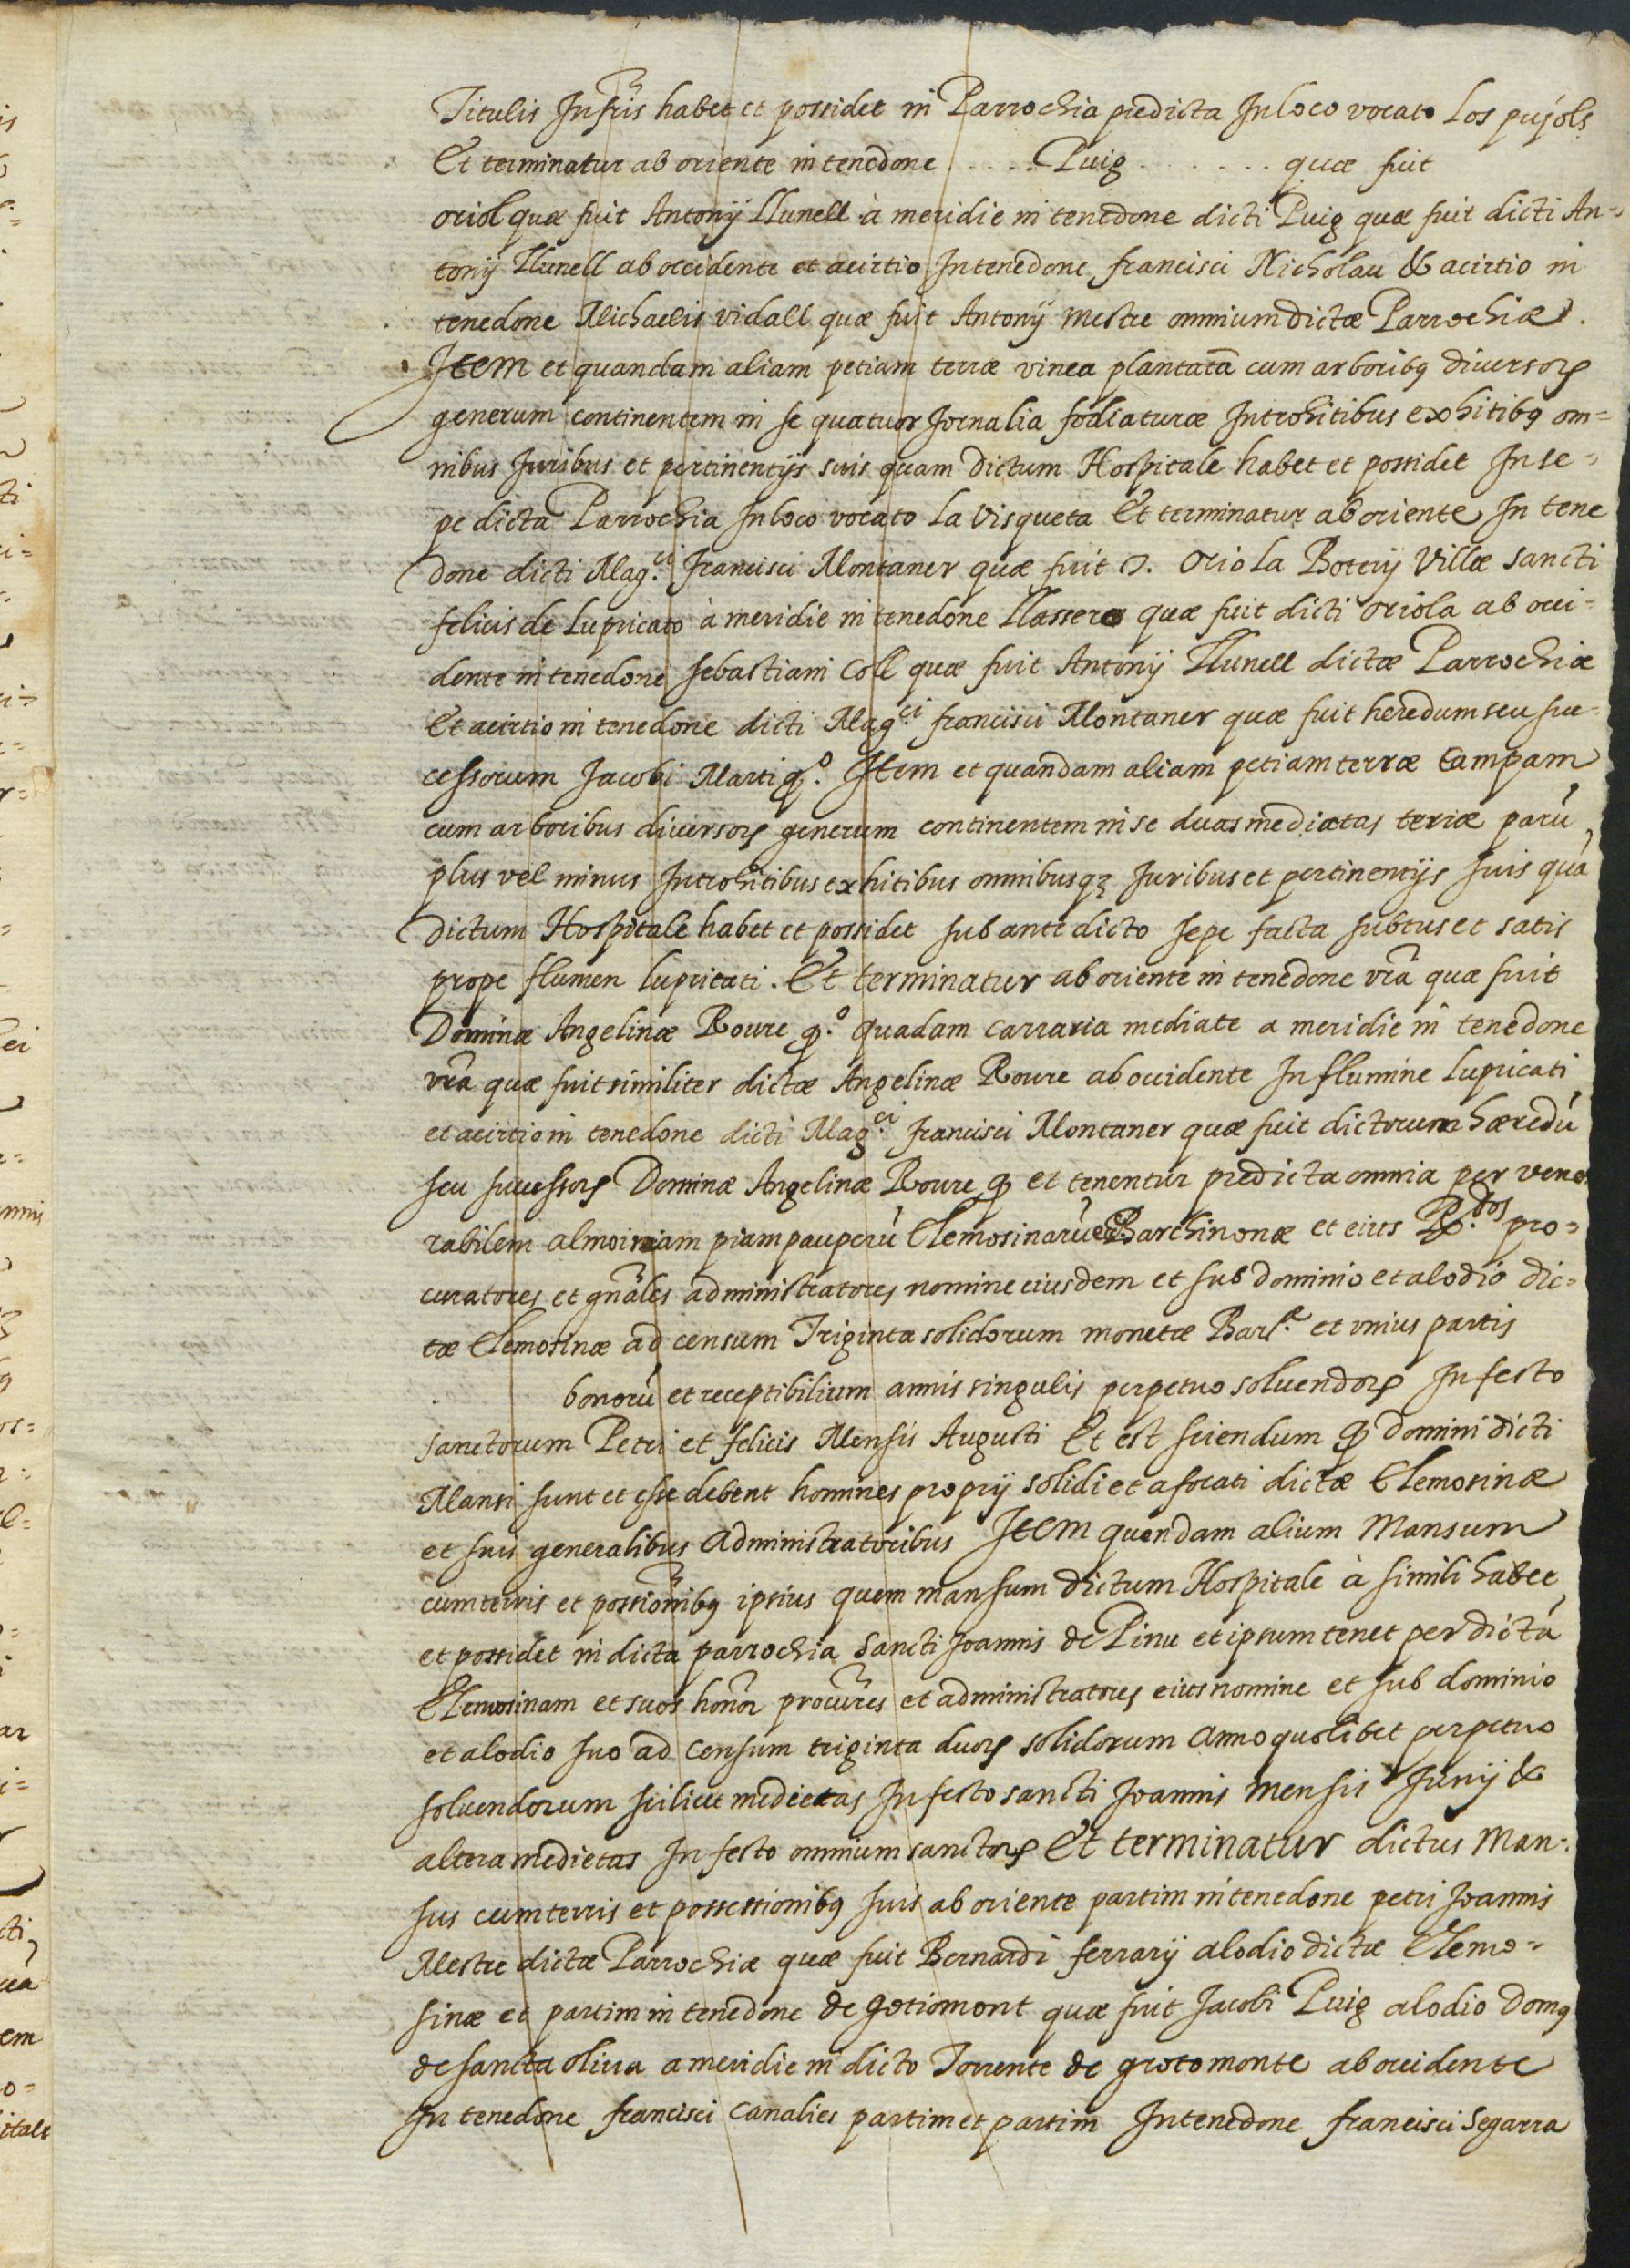 Titulis Infrĩs habet et possidet in Parrochia predicta In loco vocato Los pujols
Et terminatur ab oriente in tenedone ..... Puig ........ quæ fuit
oriol quæ fuit Antonij Llunell à meridie in tenedone dicti Puig quæ fuit dicti An=
tonij Llunell ab occidente et acirtio In tenedone francisci Nicholau & acirtio in
tenedone Michaelis vidall quæ fuit Antonij mestre omnium dictæ Parrochiæ.
Item et quandam aliam petiam terræ vinea plantatã cum arboribꝰ diuersoꝝ
generum continentem in se quatuor Jornalia fodiaturæ Introhitibus exhitibꝰ om=
nibus Juribus et pertinentijs suis quam dictum Hospitale habet et possidet In se=
pe dicta Parrochia In loco vocato La Visqueta Et terminatur ab oriente In tene
done dicti Mag.ci Francisci Montaner quæ fuit J. Oriola Boterij Villæ sancti
felicis de Lupricato à meridie in tenedone Llassera quæ fuit dicti oriola ab occi=
dente in tenedone sebastiani Coll quæ fuit Antonij Llunell dictæ Parrochiæ
Et acirtio in tenedone dicti Mag.ci francisci Montaner quæ fuit heredum seu suc=
cessorum Jacobi Marti q.o Item et quandam aliam petiam terræ Campam
cum arboribus diuersoꝝ generum continentem in se duas mediatas teriæ parũ
plus vel minus Introhitibus exhitibus omnibusqꝫ Juribus et pertinentijs suis quã
dictum Hospitale habet et possidet sub ante dicto sepe facta subtus et satis
prope flumen Lupricati. Et terminatur ab oriente in tenedone vr̃a quæ fuit
Dominæ Angelinæ Roure q.o quadam carraria mediate a meridie in tenedone
vr̃a quæ fuit similiter dictæ Angelinæ Roure ab occidente In flumine Lupricati
et acirtio in tenedone dicti Mag.ci Francisci Montaner quæ fuit dictorum hæredũ
seu successoꝝ Dominæ Angelinæ Roure q̃ et tenentur predicta omnia per vene
rabilem almoiniam piam pauperũ Elemosinarũ Barchinonæ et eius R.dos pro=
curatores et gñales administratores nomine eiusdem et sub dominio et alodio dic=
tæ Elemosinæ ad censum Triginta solidorum monetæ Bar.e et vnius partis
bonorũ et receptibilium annis singulis perpetuo soluendoꝝ In festo
sanctorum Petri et felicis Mensis Augusti Et est sciendum q̃ domini dicti
Mansi sunt et esse debent homines proprij solidi et afocati dictæ Elemosinæ
et suis generalibus Administratoribus Item quendam alium Mansum
cum terris et possiõnibꝰ ipsius quem mansum dictum Hospitale à simili habet
et possidet in dicta parrochia Sancti Joannis de Pinu et ipsum tenet per dictã
Elemosinam et suos honor̃ procur̃es et administratores eius nomine et sub dominio
et alodio suo ad Censum triginta duoꝝ solidorum Anno quolibet perpetuo
soluendorum scilicet medietas In festo sancti Joannis Mensis Junij &
altera medietas In festo omnium sanctoꝝ Et terminatur dictus Man=
sus cum terris et possessionibꝰ suis ab oriente partim in tenedone petri Joannis
Mestre dictæ Parrochiæ quæ fuit Bernardi ferrarij alodio dictæ Elemo=
sinæ et partim in tenedone de gotiomont quæ fuit Jacobi Puig alodio Domꝰ
de sancta oliua a meridie in dicto Torrente de grotomonte ab occidente
In tenedone francisci Canalies partim et partim In tenedone francisci Segarra